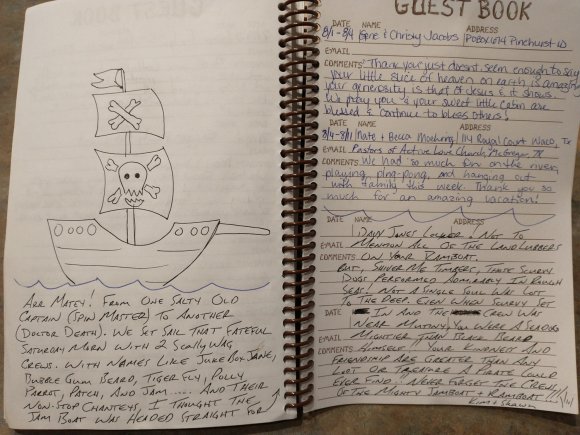 ARR MATEY! FROM ONE SALTY OLD
CAPTAIN (SPIN MASTER) TO ANOTHER
(DOCTOR DEATH). WE SET SAIL THAT FATEFUL
SATURDAY MORN WITH 2 SCALLYWAG
CREWS. WITH NAMES LIKE JUKE BOX JANE,
BUBBLE GUM BEARD, TIGER FLY, POLLY
PARROT, PATCH, AND JAM..... AND THEIR
NON-STOP CHANTEYS, I THOUGHT THE
JAM BOAT WAS HEADED STRAIGHT FOR
GUEST BOOK
DATE NAME ADDRESS
8/1-8/4 Gene & Christy Jacobs PO BOX 1674 Pinehurst ID
EMAIL
COMMENTS Thank you just doesnt seem enough to say
your little slice of heaven on earth is amazing
your generosity is that of Jesus & it shows.
We pray you & your sweet little cabin are
blessed & continue to bless others!
DATE NAME ADDRESS
8/4-8/11 Nate + Becca Moehring 114 Royal Court Waco, Tx
EMAIL Pastors of Active Love Church, McGregor, TX
COMMENTS We had so much fun on the river,
playing ping-pong, and hanging out
with family this week. Thank you so
much for an amazing vacation!
DATE NAME ADDRESS
DAVY JONES LOCKER! NOT TO
EMAIL MENTION ALL OF THE LANDLUBBERS
COMMENTS ON YOUR RAMBOAT.
BUT, SHIVER ME TIMBERS, THOSE SCURVY
DOGS PERFORMED ADMIRABLY IN ROUGH
SEAS! NOT A SINGLE SOUL WAS LOST
TO THE DEEP. EVEN WHEN SCURVY SET
DATE IN AND THE CREW WAS
NEAR MUTINY, YOU WERE A SEADOG
EMAIL MIGHTIER THAN BLACK BEARD
COMMENTS HIMSELF. YOUR COMPANY AND
FRIENDSHIP ARE GREATER THAN ANY
LOOT OR TREASURE A PIRATE COULD
EVER FIND. NEVER FORGET THE CREWS
OF THE MIGHTY JAMBOAT + RAMBOAT!!!
KIM & SHAWN